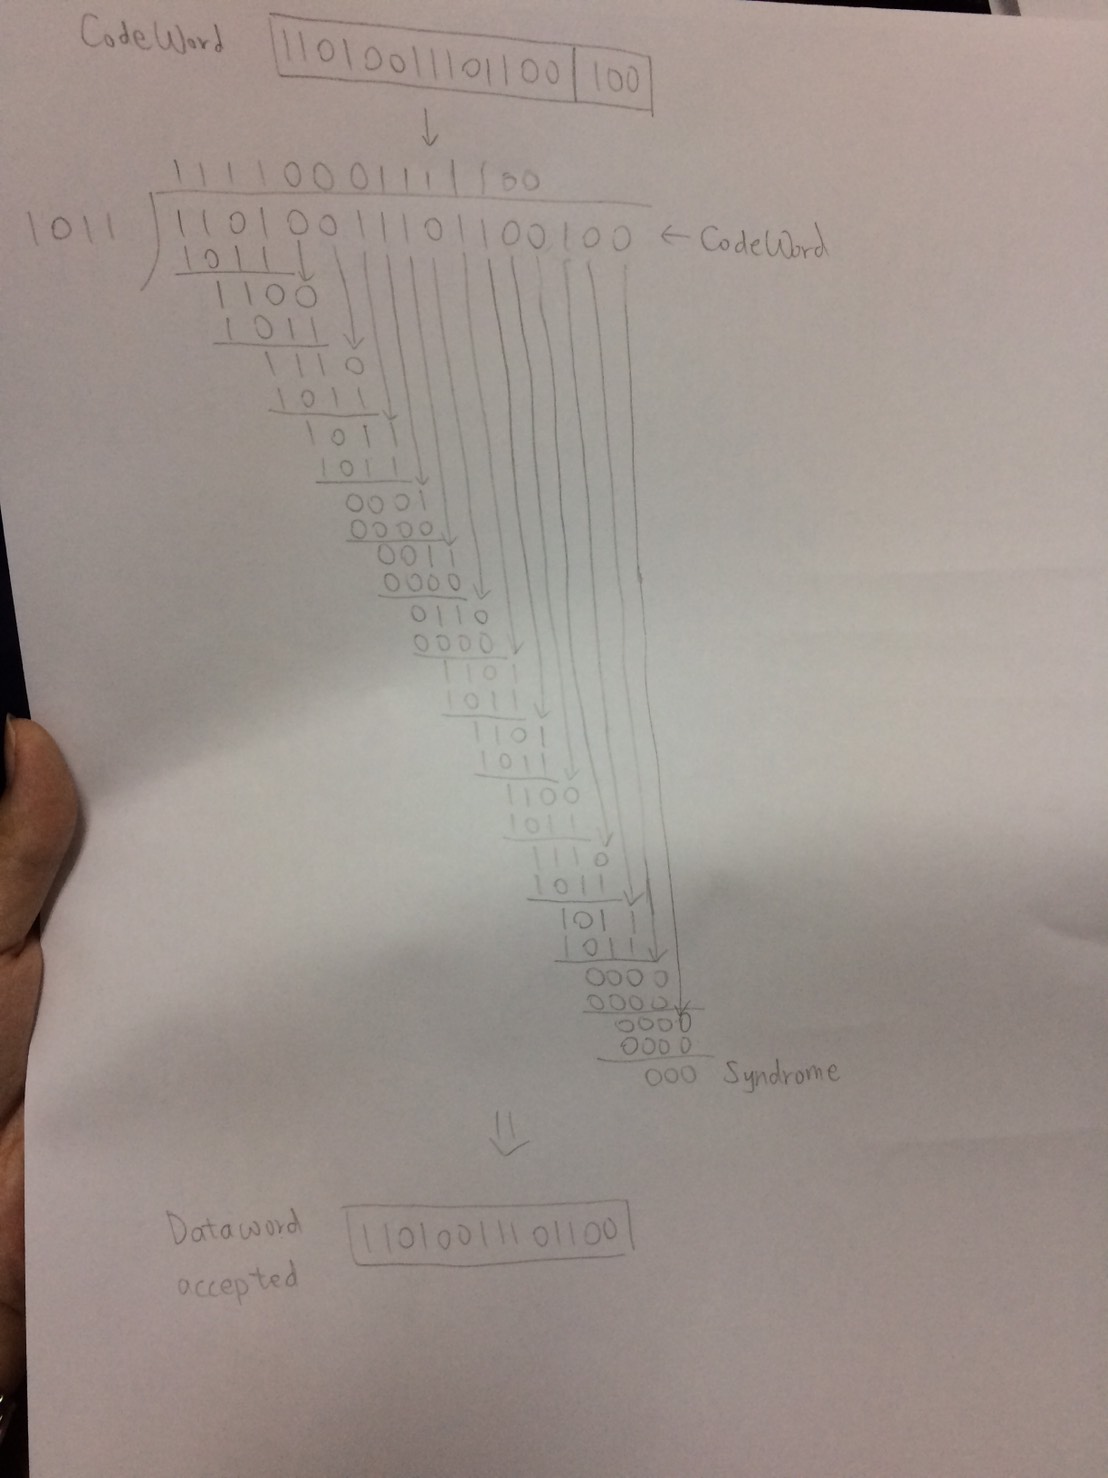 CodeWord 11010011101100 100
↓
11110001111100
1011 11010011101100100 ← CodeWord
1011
1100
1011
1110
1011
1011
1011
0001
0000
0011
0000
0110
0000
1101
1011
1101
1011
1100
1011
1110
1011
1011
1011
0000
0000
0000
0000
000 Syndrome
⇓
Dataword 11010011101100
accepted